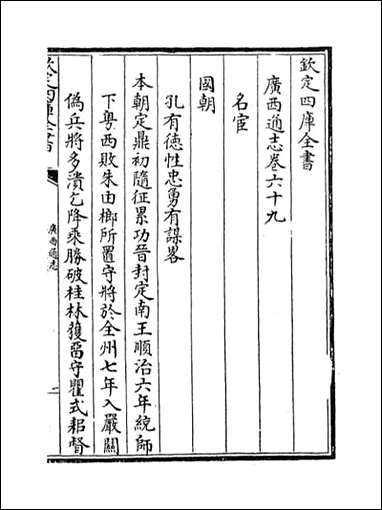 欽定四庫全書
廣西通志卷六十九
名宦
國朝
孔有德性忠勇有謀畧
本朝定鼎初隨征累功晉封定南王順治六年統師
下粤西敗朱由榔所置守將於全州七年入嚴關
偽兵將多潰乞降乘勝破桂林獲留守瞿式耜督
欽定四庫全書
廣西通志
一